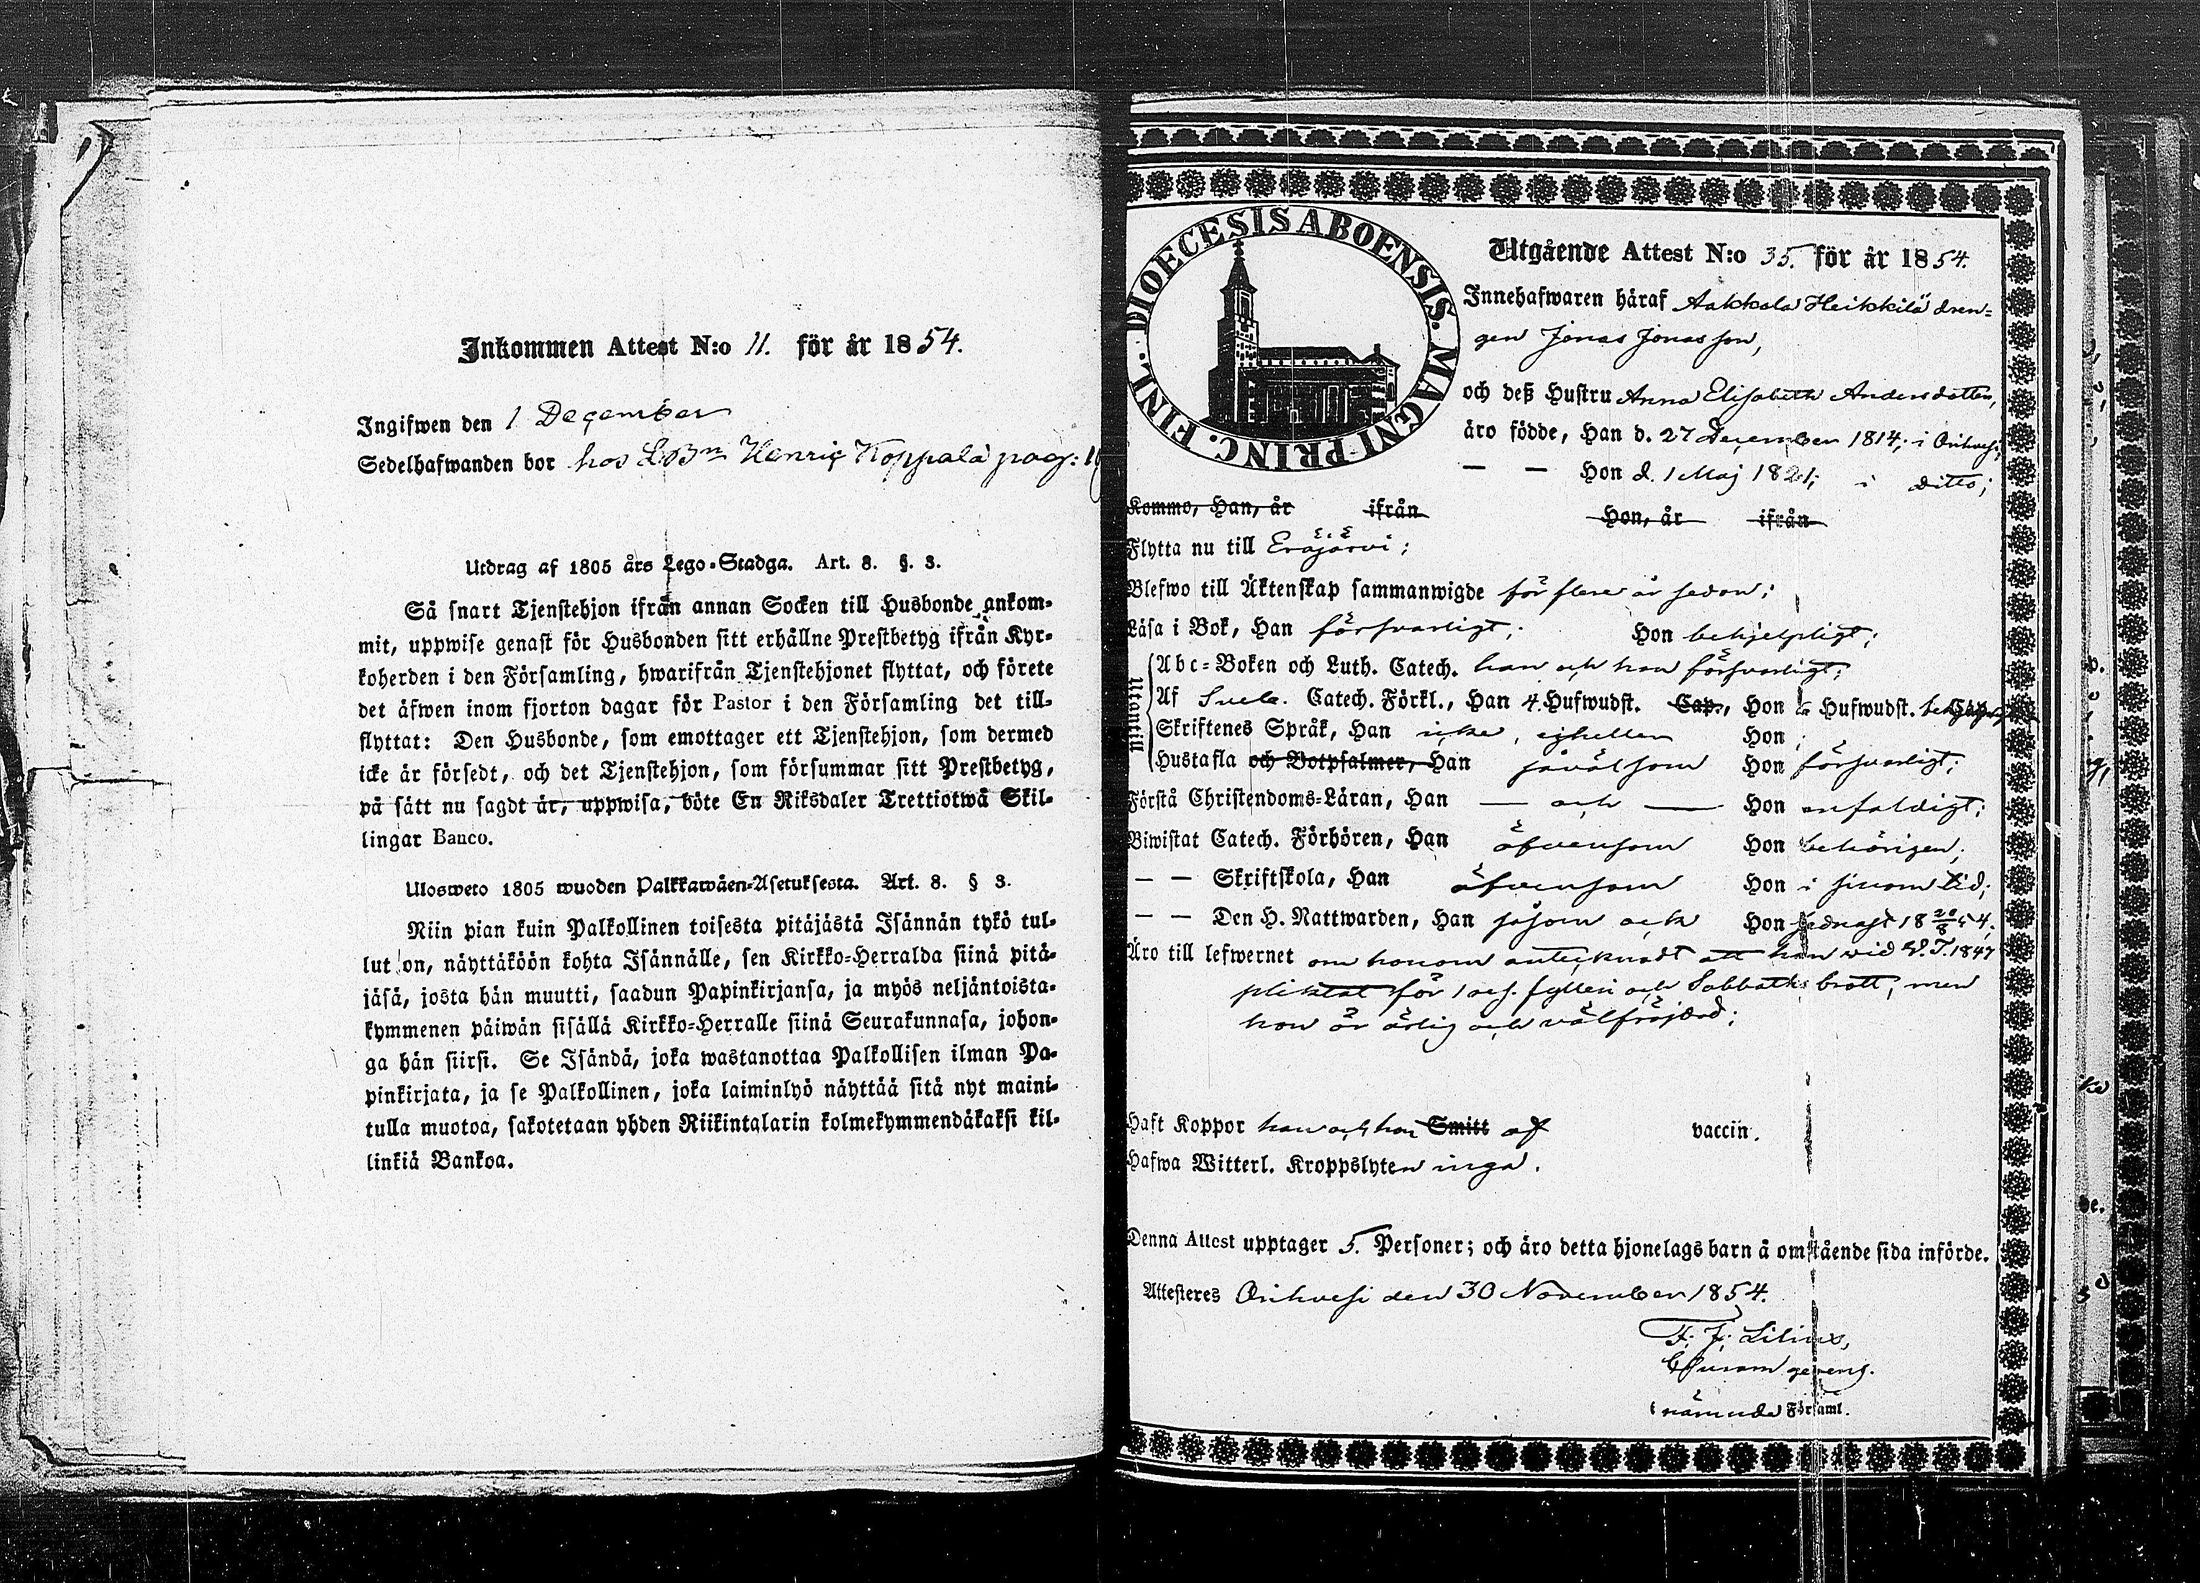 Inkommen Attest N:o 11. för år 1854.
Ingifwen den 1 December
Sedelhafwanden bor hos LBn Henric Koppala pag:
Utdrag af 1805 års Lego-Stadga. Art. 8. §. 3.
Så snart Tjenstehjon ifrån annan Socken till Husbonde ankom-
mit, uppwise genast för Husbonden sitt erhållne Prestbetyg ifrån Kyr-
koherden i den Församling, hwarifrån Tjenstehjonet flyttat, och förete
det äfwen inom fjorton dagar för Pastor i den Församling det till-
flyttat: Den Husbonde, som emottager ett Tjenstehjon, som dermed
icke är försedt, och det Tjenstehjon, som försummar sitt Prestbetyg,
på sätt nu sagdt är, uppwisa, böte En Riksdaler Trettiotwå Skil-
lingar Banco.
Ulosweto 1805 wuoden Palkkawäen-Asetuksesta. Art. 8. § 3.
Niin pian kuin Palkollinen toisesta pitäjästä Isännän tykö tul-
lut on, näyttäköön kohta Isännälle, sen Kirkko-Herralda siinä pitä-
jäsä, josta hän muutti, saadun Papinkirjansa, ja myös neljäntoista-
kymmenen päiwän sisällä Kirkko-Herralle siinä Seurakunnasa, johon-
ga hän siirsi. Se Isändä, joka wastanottaa Palkollisen ilman Pa-
pinkirjata, ja se Palkollinen, joka laiminlyö näyttää sitä nyt maini-
tulla muotoa, sakotetaan yhden Riikintalarin kolmekymmendäkaksi kil-
linkiä Bankoa.
DIOECESIS ABOENSIS. MAGNI PRINC. FINL.
Utgående Attest N:o 35. för år 1854.
Innehafwaren häraf Aakkola Heikkilä dren-
gen Jonas Jonasson,
och deß Hustru Anna Elisabeth Andersdotter,
äro födde, Han d. 27 December 1814, i Orihvesi;
— — Hon d. 1 Maj 1821; i ditto;
Kommo, Han, år ifrån Hon, år ifrån
Flytta nu till Eräjärvi;
Blefwo till Äktenskap sammanwigde för flere år sedan;
Läsa i Bok, Han försvarligt; Hon behjelpligt;
Utantill
Abc-Boken och Luth. Catech. han och hon försvarligt;
Af Sveb. Catech. Förkl., Han 4. Hufwudst. Cap., Hon Hufwudst. Cap.
Skriftenes Språk, Han icke, ejheller Hon;
Hustafla och Botpsalmer, Han såväl som Hon försvarligt;
Förstå Christendoms-Läran, Han — och — Hon enfaldigt;
Biwistat Catech. Förhören, Han äfvensom Hon behörigen;
— — Skriftskola, Han äfvensom Hon i sinom tid;
— — Den H. Nattwarden, Han såsom och Hon sednast 18 20/8 54.
Äro till lefwernet om honom antecknadt att han wid V.T. 1847
pliktat för 1 ocs. fylleri och Sabbaths brott, men
hon är ärlig och välfrejdad;
Haft Koppor han och hon Smitt af vaccin.
Hafwa Witterl. Kroppslyten inga.
Denna Attest upptager 5. Personer; och äro detta hjonelags barn å omstående sida införde.
Attesteres Orihvesi den 30 November 1854.
F. J. Lilius,
i nämnde Församl.